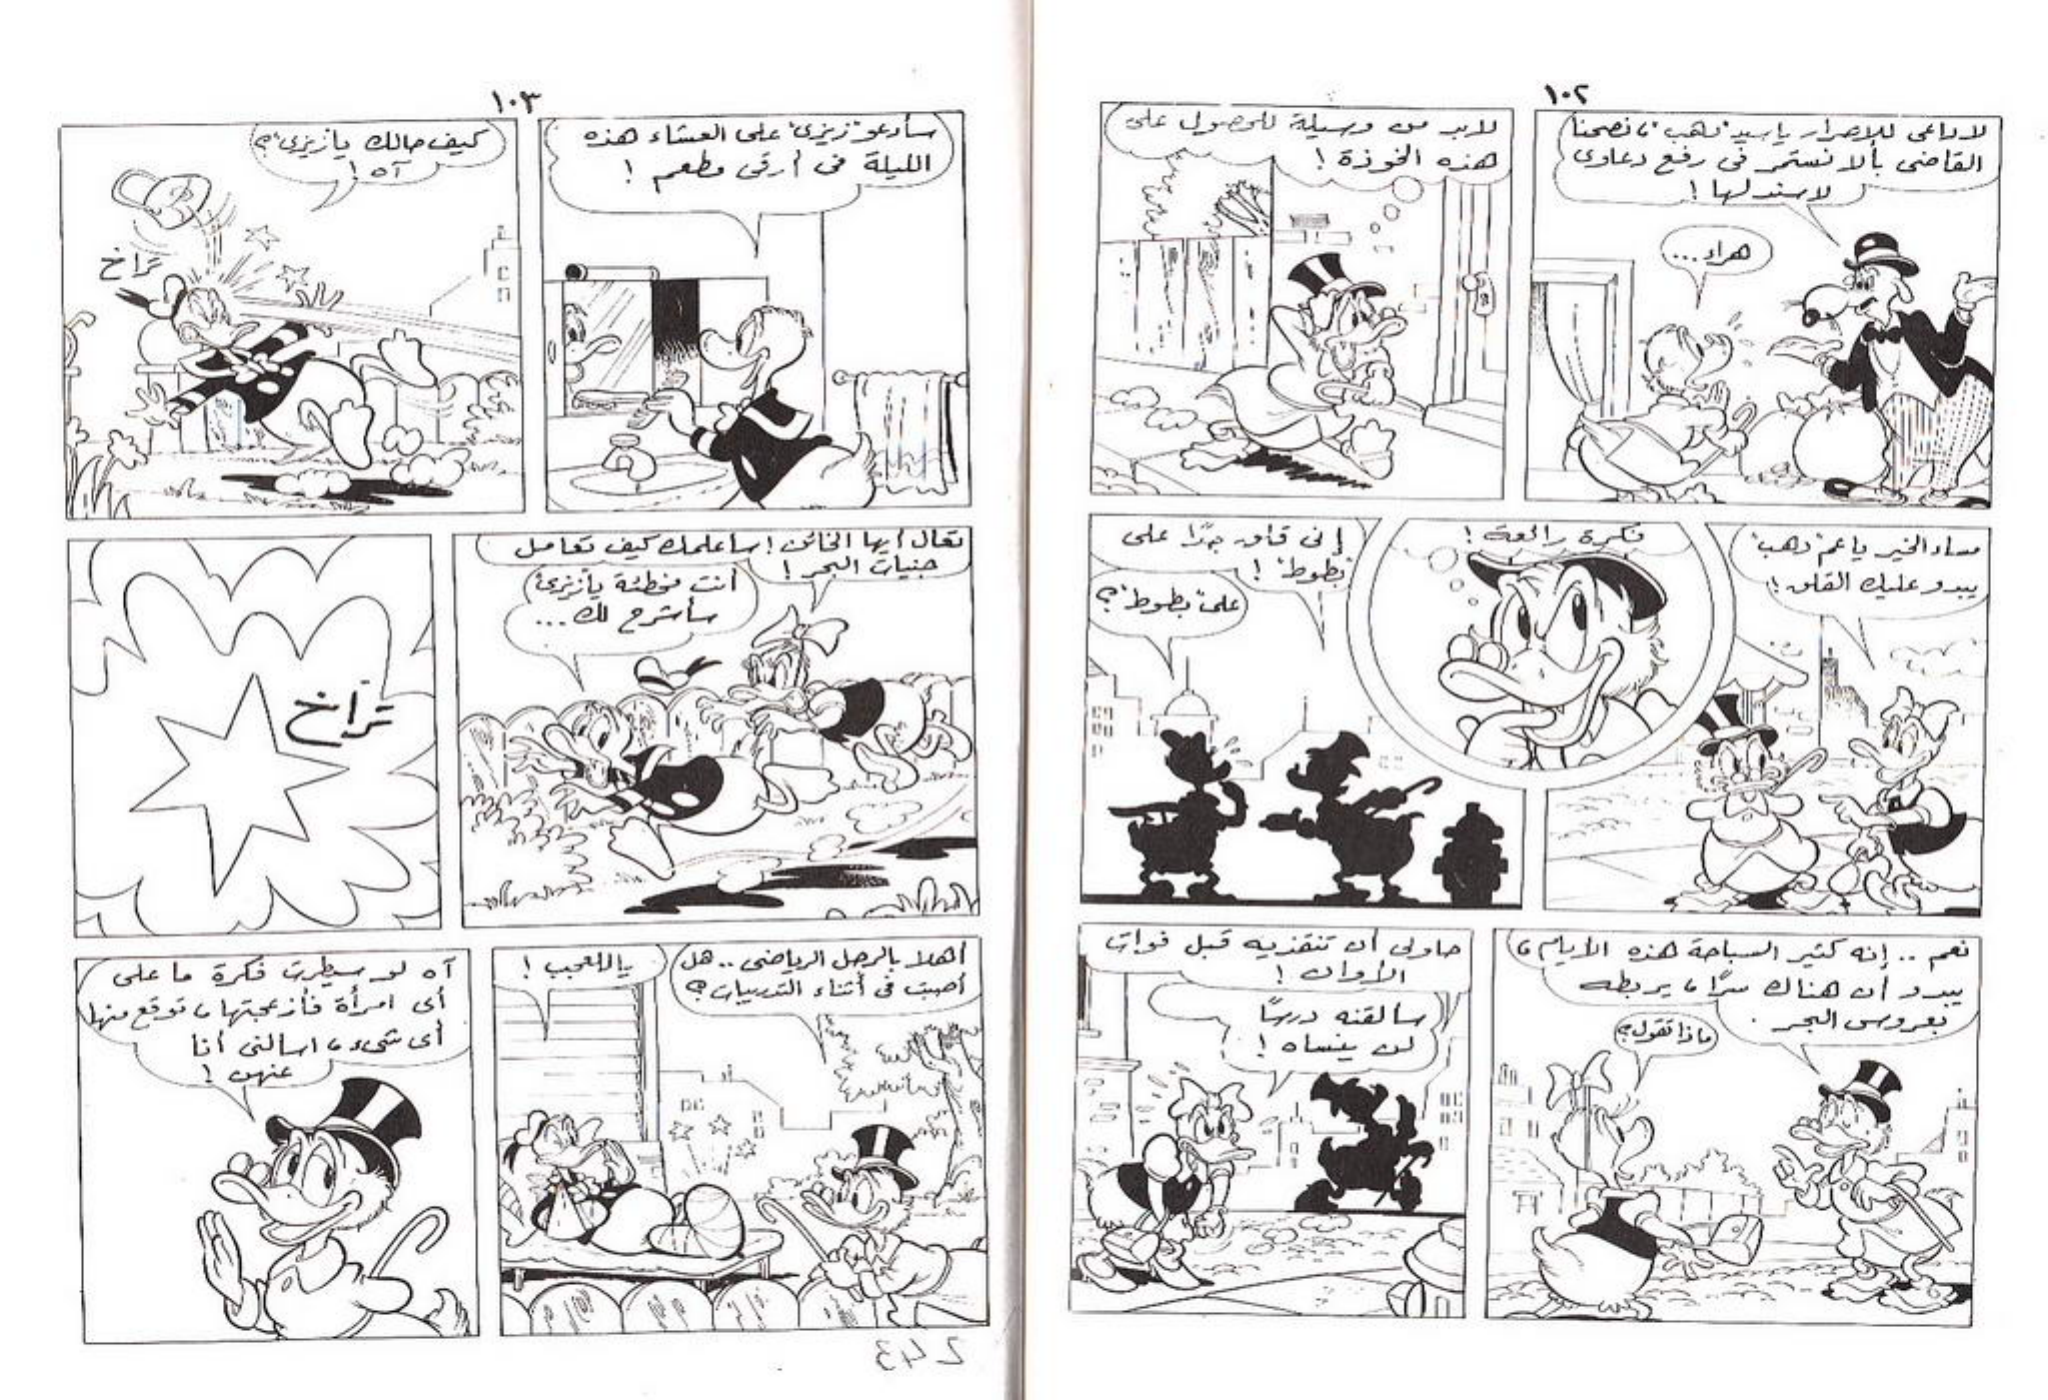 ١٠٢
لاداعى للاصرار ياسيد "دهب"، نصحنا
القاضى بألا نستمر فى رفع دعاوى
لاسند لها !
هراء ...
لابد من وسيلة للحصول على
هذه الخوذة !
مساء الخير ياعم "دهب"
يبدو عليك القلق !
فكرة رائعة !
إنى قلق جدًا على
"بطوط" !
على "بطوط" ؟
نعم .. إنه كثير السباحة هذه الأيام ،
يبدو أن هناك سرًا ، يربطه
بعروس البحر .
ماذا تقول ؟
حاولى أن تنقذيه قبل فوات
الأوان !
سألقنه درسًا
لن ينساه !
١٠٣
سأدعو "زيزى" على العشاء هذه
الليلة فى أرقى مطعم !
كيف حالك يا "زيزى" ؟
آه !
تراخ
تعال أيها الخائن ! سأعلمك كيف تعامل
جنيات البحر !
أنت مخطئة يا "زيزى"
سأشرح لك ...
تراخ
أهلا بالرجل الرياضى .. هل
أصبت فى أثناء التدريبات ؟
ياللعجب !
آه لو سيطرت فكرة ما على
أى امرأة فأزعجتها ، توقع منها
أى شىء ، اسألنى أنا
عنهن !
243